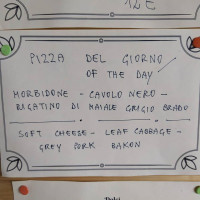 12€
PIZZA DEL GIORNO
OF THE DAY
MORBIDONE - CAVOLO NERO -
RIGATINO DI MAIALE GRIGIO BRADO
SOFT CHEESE - LEAF CABBAGE -
GREY PORK BAKON